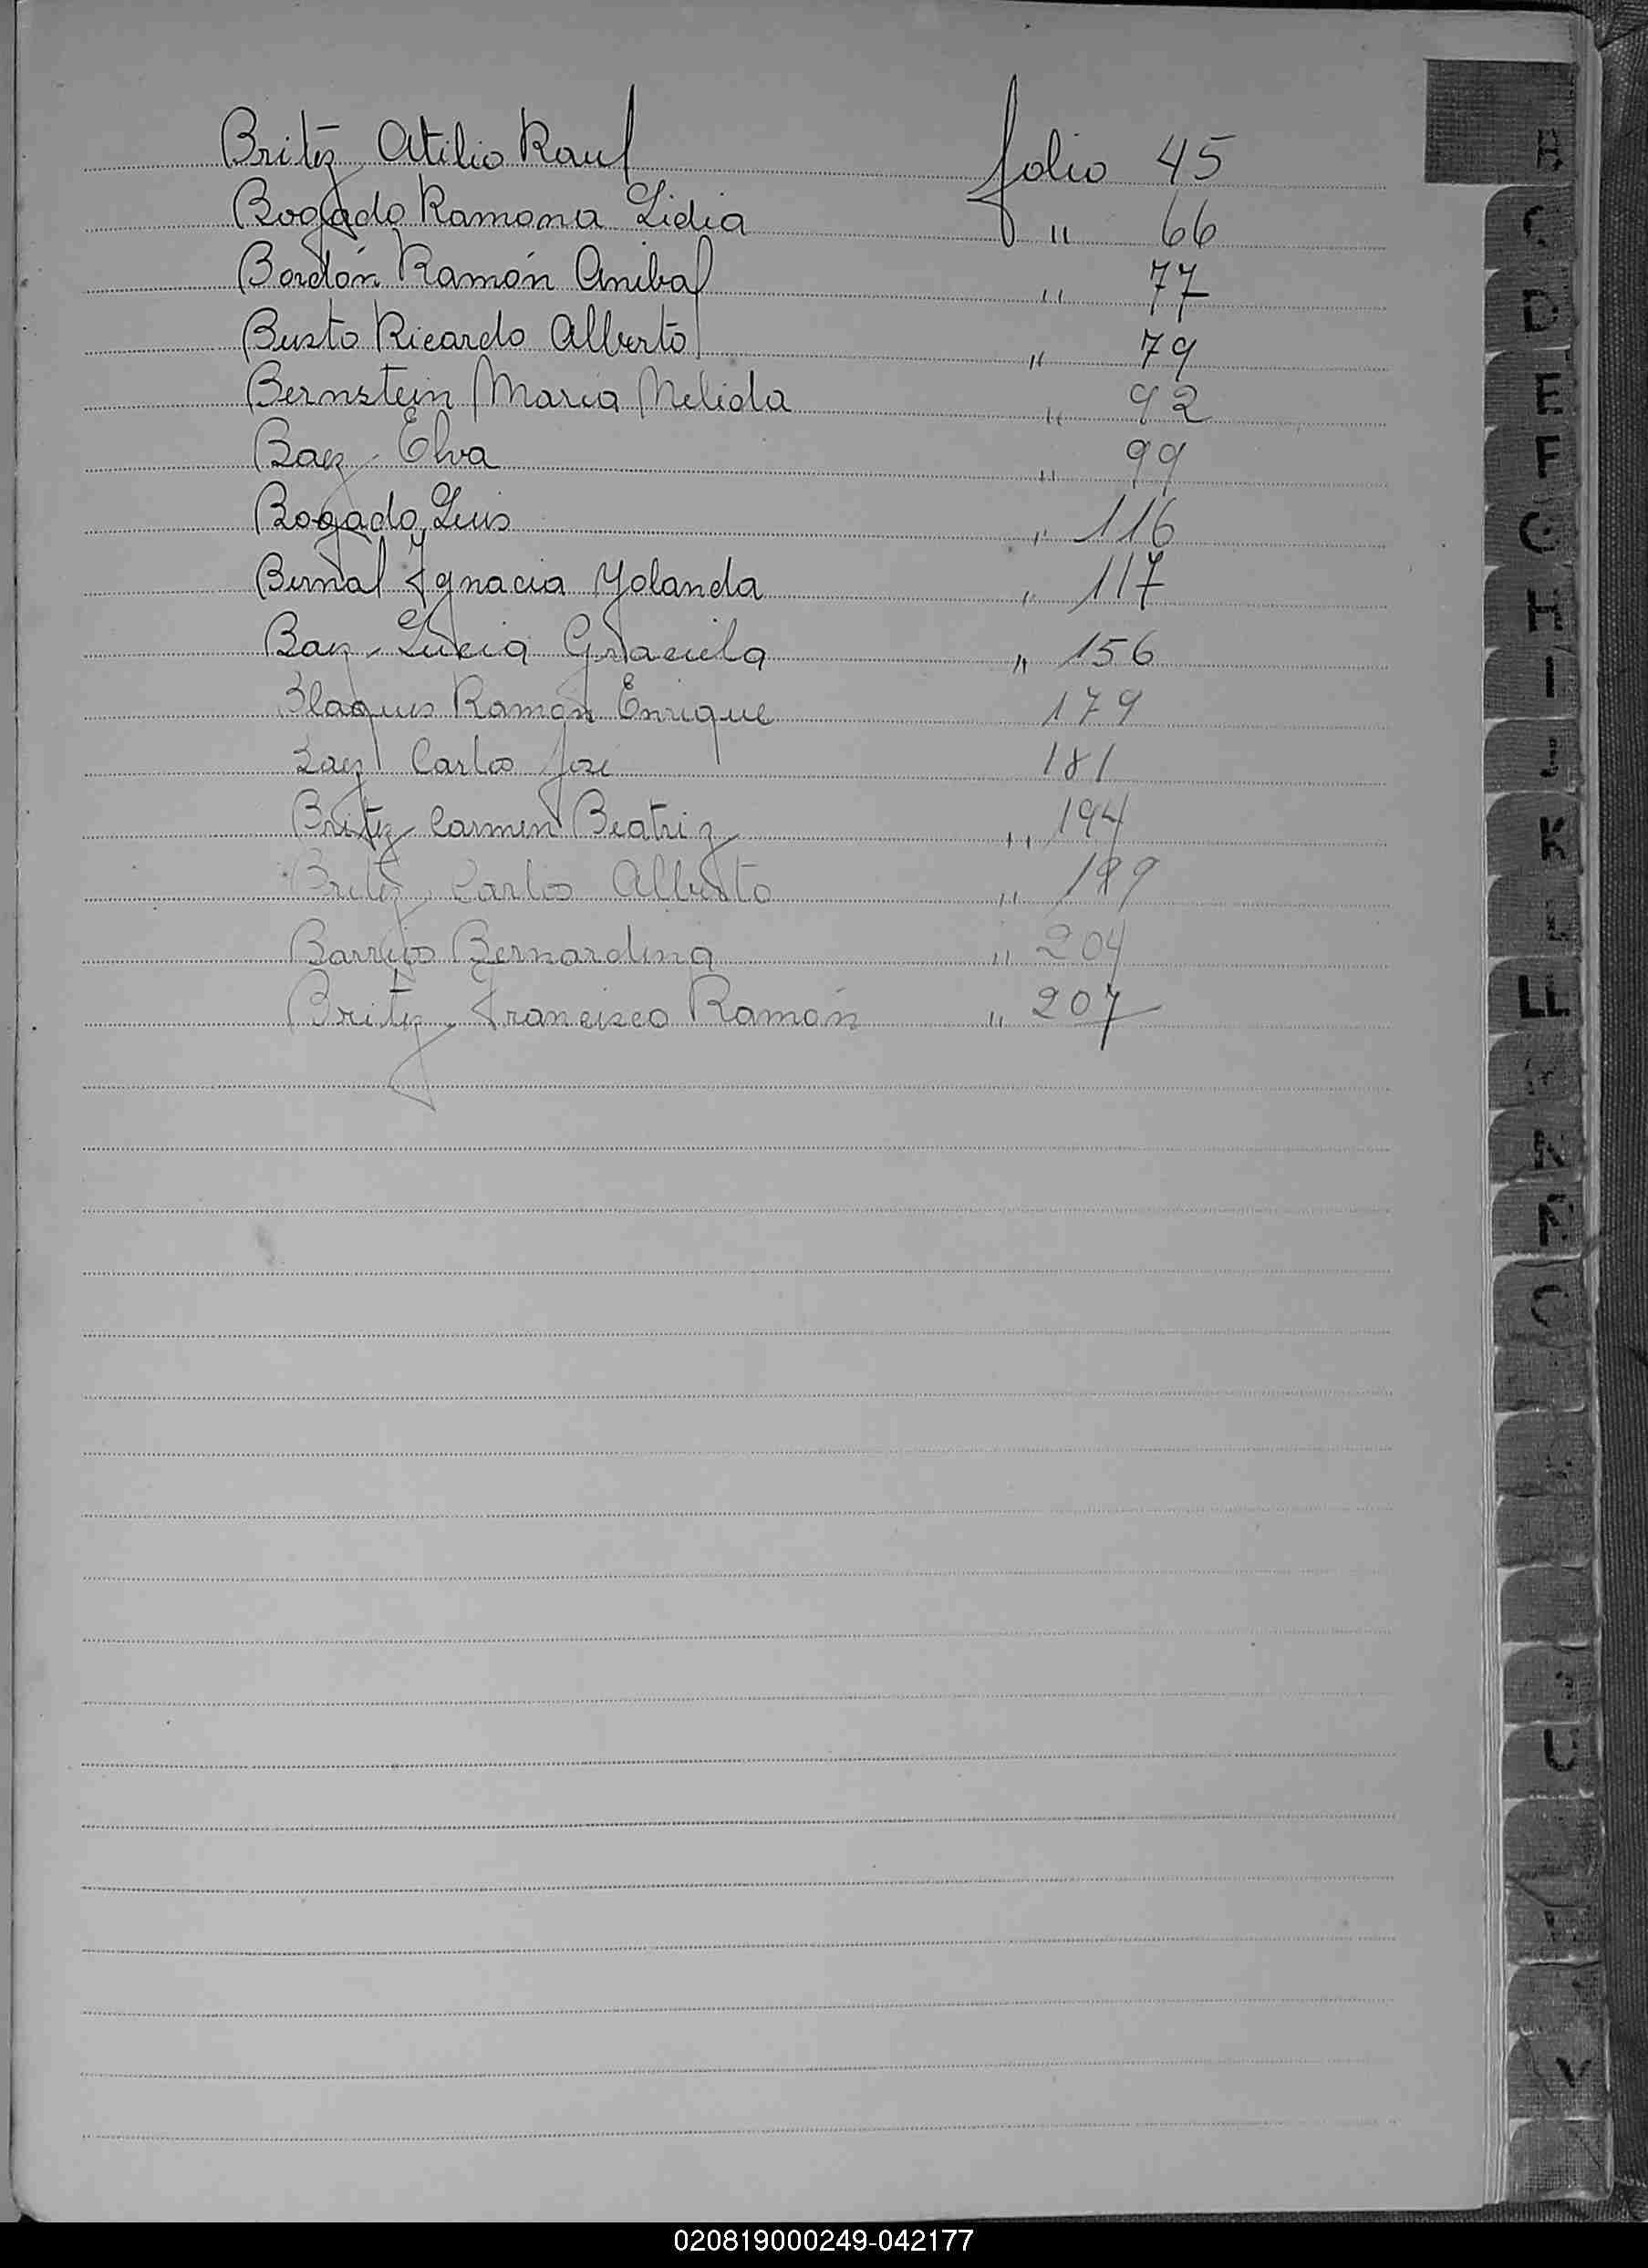 Britez Atilio Raul folio 45
Bogado Ramona Lidia " 66
Bordón Ramón Anibal " 77
Busto Ricardo Alberto " 79
Bernstein Maria Nelida " 92
Baez Elva " 99
Bogado Luis " 116
Bernal Ignacia Yolanda " 117
Baez Lucia Graciela " 156
Blaques Ramón Enrique 179
Baez Carlos José 181
Britez Carmen Beatriz " 194
Britez Carlos Alberto " 199
Barrios Bernardina " 204
Britez Francisco Ramón " 207
D
E
F
G
H
I
K
LL
N
O
U
V
020819000249-042177